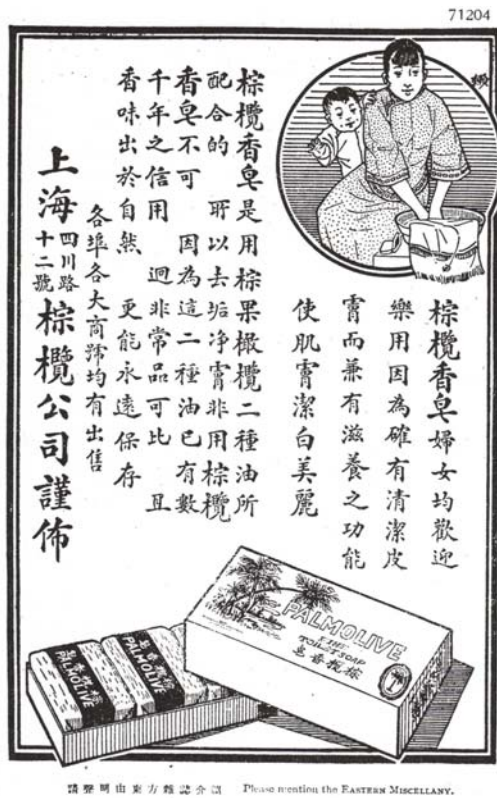 71204
棕欖香皂婦女均歡迎
樂用因為確有清潔皮
膚而兼有滋養之功能
使肌膚潔白美麗
棕欖香皂是用棕果橄欖二種油所
配合的 所以去垢净膚非用棕欖
香皂不可 因為這二種油已有數
千年之信用 迥非常品可比 且
香味出於自然 更能永遠保存
各埠各大商號均有出售
上海四川路十二號棕欖公司謹佈
PALMOLIVE
THE
TOILET SOAP
棕欖香皂
棕欖香皂
PALMOLIVE
棕欖香皂
PALMOLIVE
請聲明由東方雜誌介紹 Please mention the EASTERN MISCELLANY.